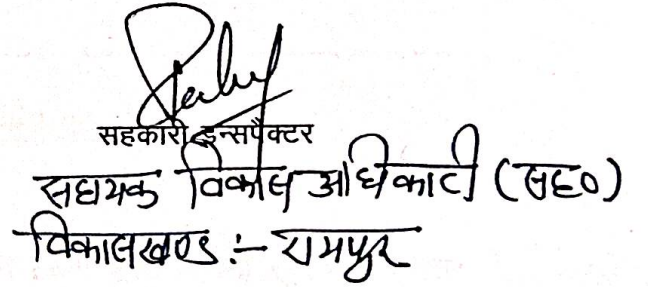 सहकारी इन्सपैक्टर
सहायक विकास अधिकारी (सह०)
विकासखण्ड :- रामपुर